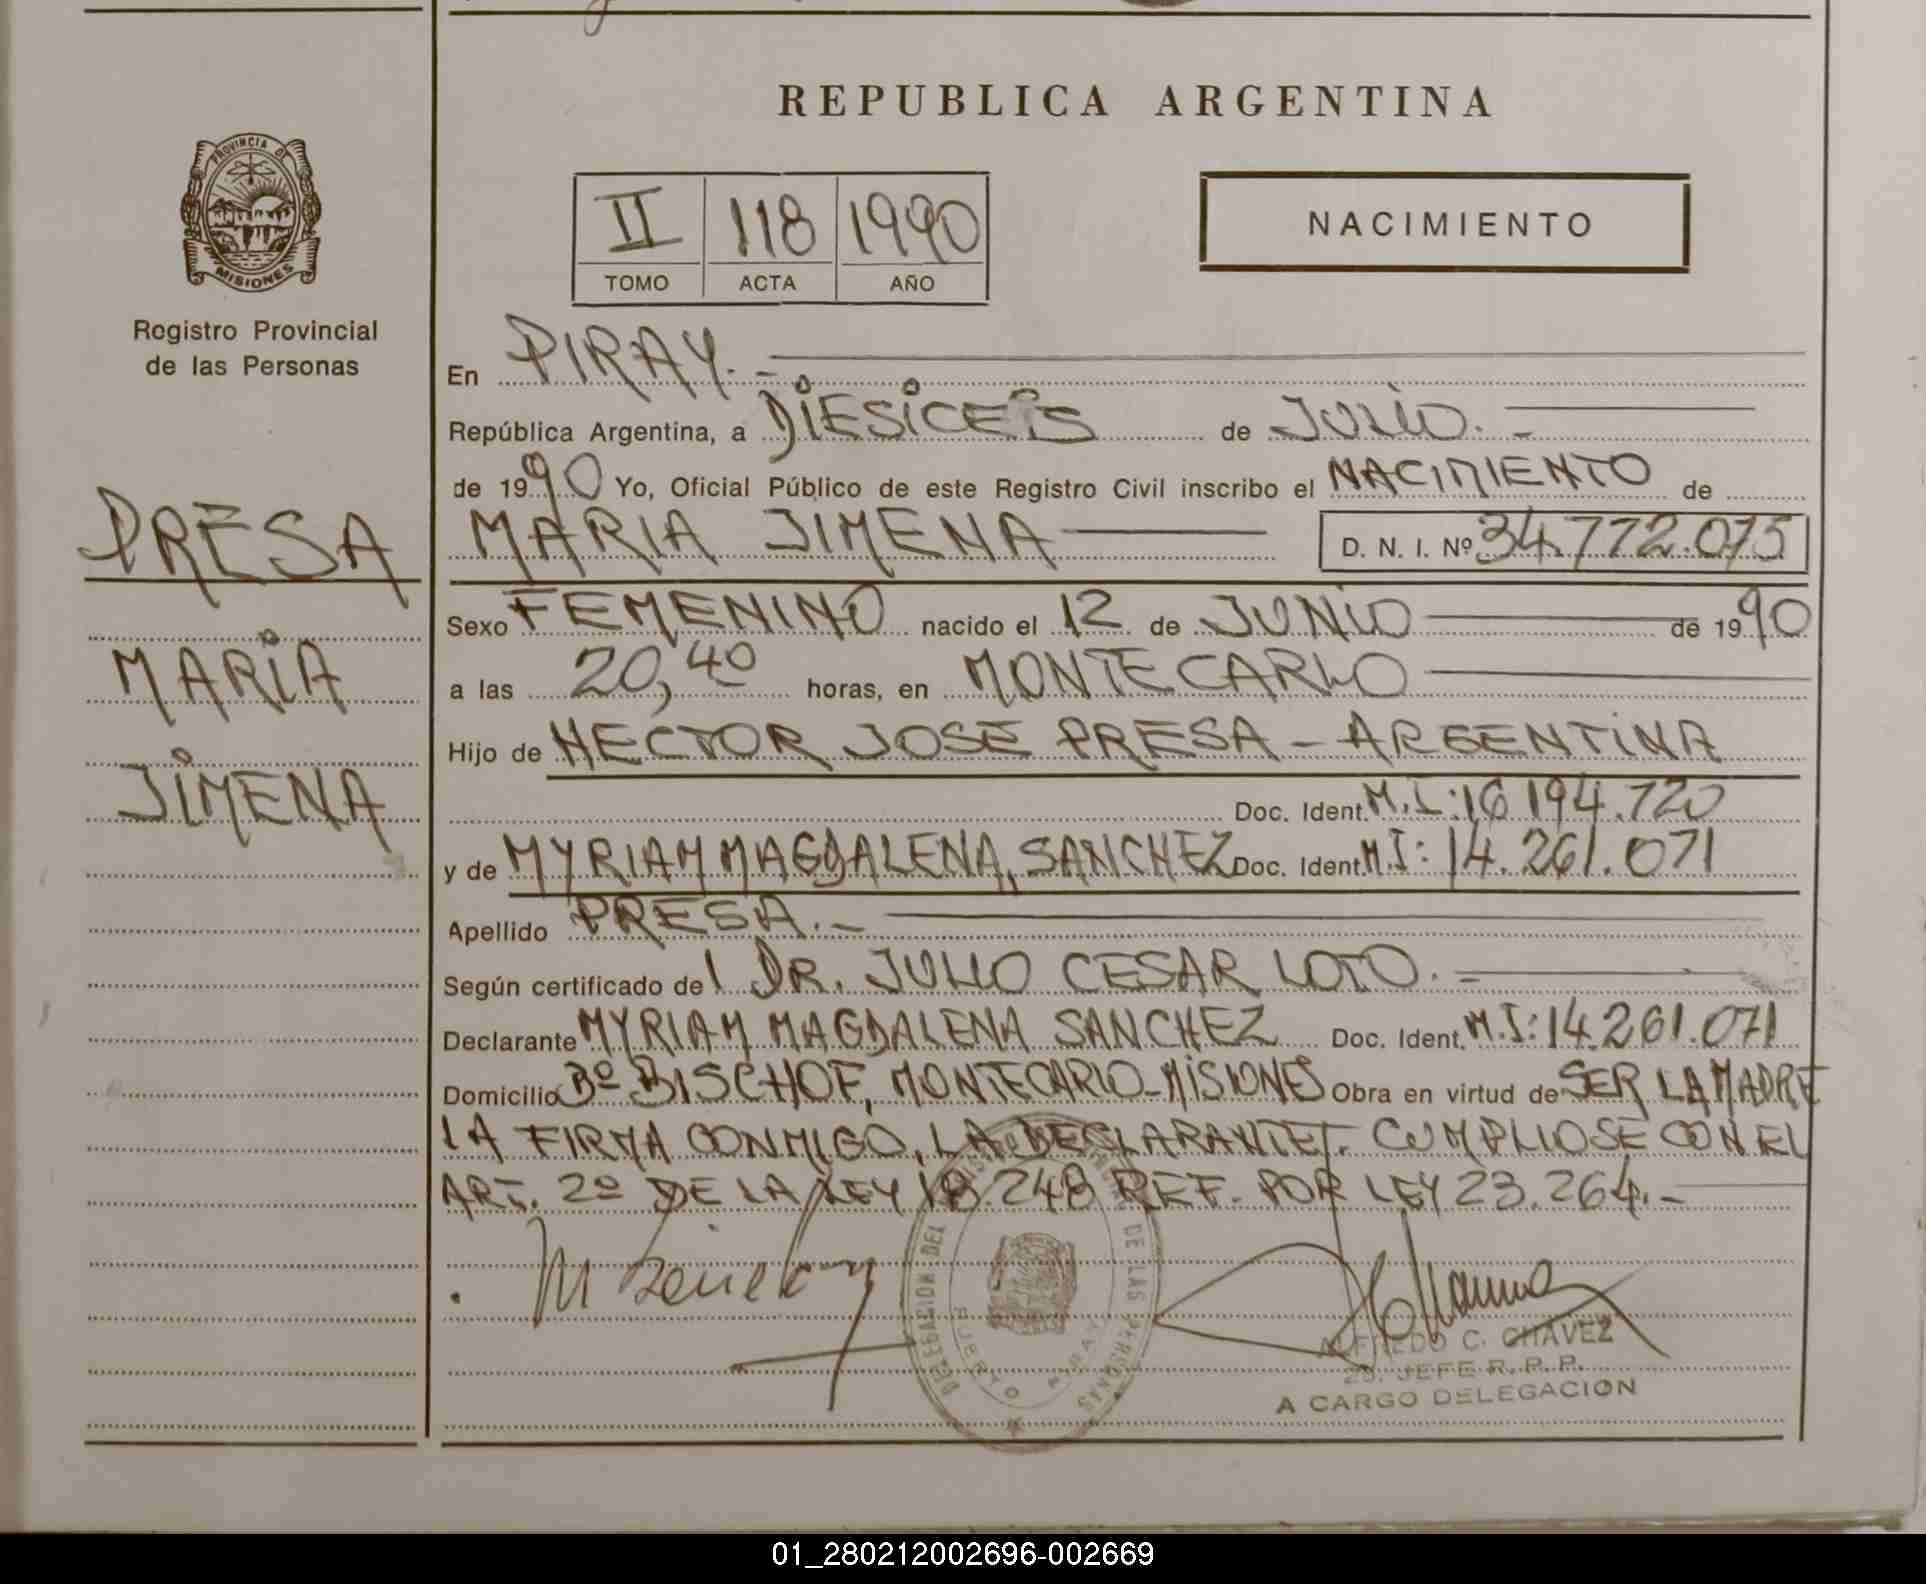 REPUBLICA ARGENTINA
PROVINCIA DE
MISIONES
Registro Provincial
de las Personas
II 118 1990
TOMO ACTA AÑO
NACIMIENTO
PRESA
MARIA
JIMENA
En PIRAY.-
República Argentina, a DIESICEIS de JULIO.-
de 1990 Yo, Oficial Público de este Registro Civil inscribo el NACIMIENTO de
MARIA JIMENA D. N. I. Nº 34.772.075
Sexo FEMENINO nacido el 12 de JUNIO de 1990
a las 20,40 horas, en MONTECARLO
Hijo de HECTOR JOSE PRESA - ARGENTINA
Doc. Ident. M.I:16.194.720
y de MYRIAM MAGDALENA, SANCHEZ Doc. Ident. M.I: 14.261.071
Apellido PRESA.-
Según certificado del DR. JULIO CESAR LOTO.-
Declarante MYRIAM MAGDALENA SANCHEZ Doc. Ident. M.I:14.261.071
Domicilio Bº BISCHOF, MONTECARLO-MISIONES Obra en virtud de SER LA MADRE
LA FIRMA CONMIGO, LA DECLARANTE.- CUMPLIOSE CON EL
ART. 2º DE LA LEY 18.248 REF. POR LEY 23.264.-
DELEGACION DEL REGISTRO PROVINCIAL DE LAS PERSONAS
PUERTO PIRAY
ALFREDO C. CHAVEZ
2º. JEFE R. P. P.
A CARGO DELEGACION
01_280212002696-002669